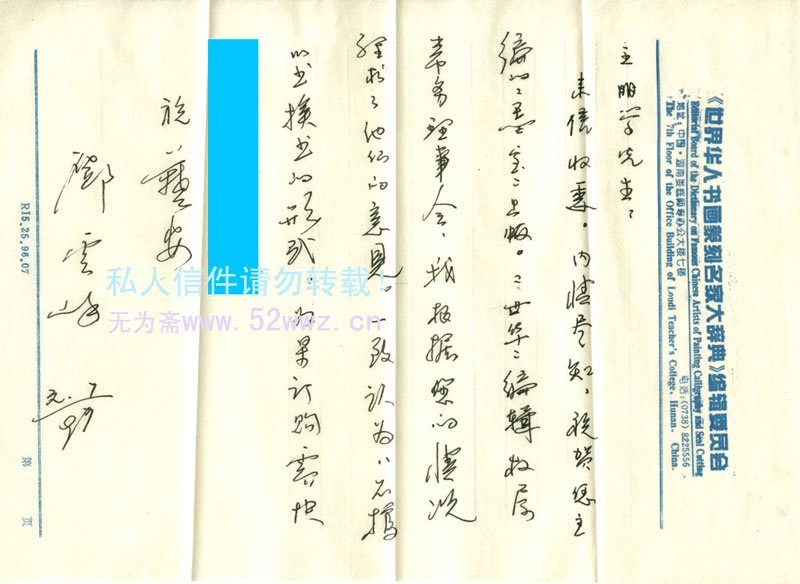 《世界华人书画篆刻名家大辞典》编辑委员会
Editorial Board of the Dictionary on Famous Chinese Artists of Painting Calligraphy and Seal Cutting
地址:中国·湖南娄底师专办公大楼七楼
电话:(0738) 8225556
The 7th Floor of the Office Building of Loudi Teacher's College, Hunan. China.
主朋学先生:
来信收悉。内情尽知,祝贺您主
编的"墨宝"出版。"世华"编辑部及
常务理事会,我根据您的情况
征求了他们的意见。一致认为,
以书换书的形式。如果订购需快
祝
艺安
邓云峰
元.7
97
R15.25.96.07
第 页
私人信件请勿转载!
无为斋www.52wwz.cn